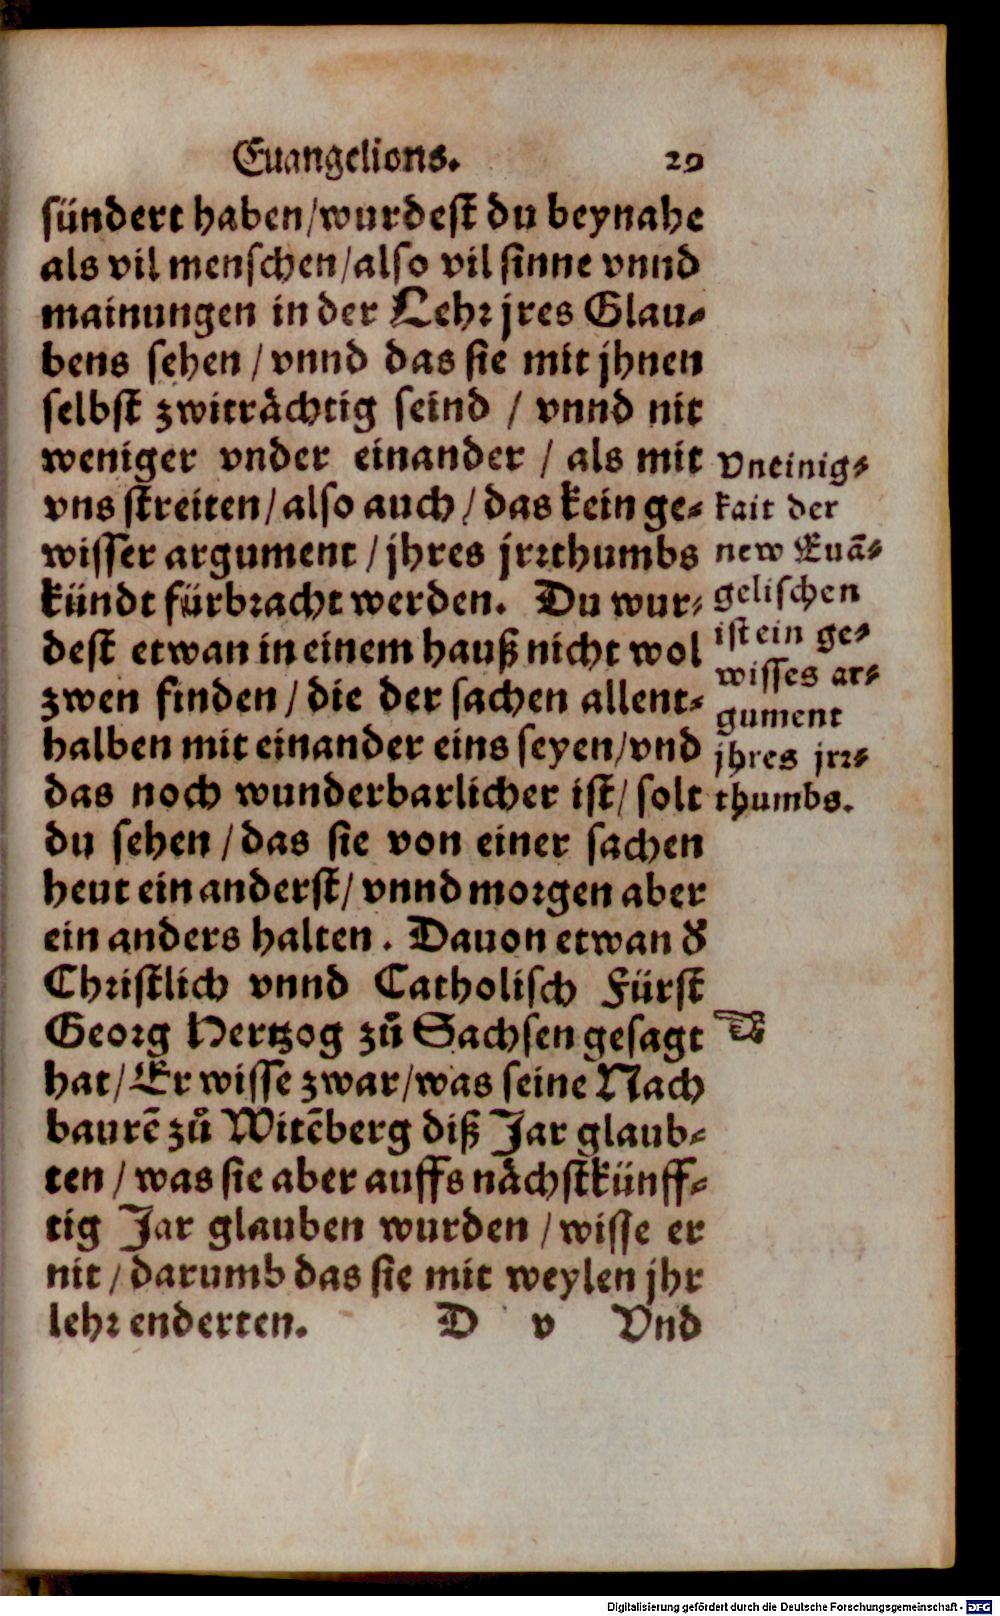 Euangelions. 29
sündert haben/wurdest du beynahe
als vil menschen/also vil sinne vnnd
mainungen in der Lehr jres Glau-
bens sehen / vnnd das sie mit jhnen
selbst zwiträchtig seind / vnnd nit
weniger vnder einander / als mit
vns streiten/also auch / das kein ge-
wisser argument / jhres jrrthumbs
kündt fürbracht werden. Du wur-
dest etwan in einem hauß nicht wol
zwen finden / die der sachen allent-
halben mit einander eins seyen/vnd
das noch wunderbarlicher ist/ solt
du sehen / das sie von einer sachen
heut ein anderst/ vnnd morgen aber
ein anders halten. Dauon etwan d̕
Christlich vnnd Catholisch Fürst
Georg Hertzog zů Sachsen gesagt
hat/ Er wisse zwar/was seine Nach
baurē zů Witēberg diß Jar glaub-
ten / was sie aber auffs nächstkünff-
tig Jar glauben wurden / wisse er
nit / darumb das sie mit weylen jhr
lehr enderten. D v Vnd
Vneinig-
kait der
new Euā-
gelischen
ist ein ge-
wisses ar-
gument
jhres jrr-
thumbs.
☜
Digitalisierung gefördert durch die Deutsche Forschungsgemeinschaft - DFG